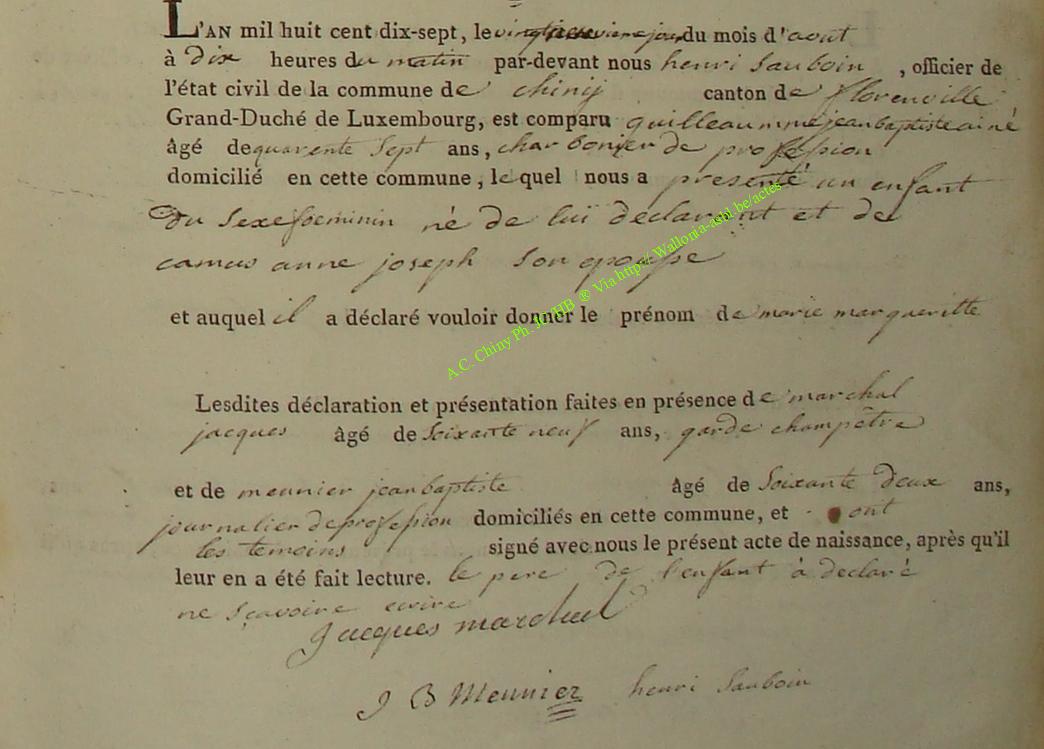 L'AN mil huit cent dix-sept, le jour du mois d'aout
à dix heures du matin par-devant nous henri Sauboin , officier de
l'état civil de la commune de chiny canton de florenville
Grand-Duché de Luxembourg, est comparu guilleaumme jean baptiste ainé
âgé de quarente Sept ans, charbonier de profession
domicilié en cette commune, lequel nous a presenté un enfant
du Sexe foeminin né de lui declarant et de
camus anne joseph Son epouse
et auquel il a déclaré vouloir donner le prénom de marie margueritte
Lesdites déclaration et présentation faites en présence de marchal
jacques âgé de Soixante neuf ans, garde champêtre
et de meunier jean baptiste âgé de Soixante deux ans,
journalier de profession domiciliés en cette commune, et ont
les temoins signé avec nous le présent acte de naissance, après qu'il
leur en a été fait lecture. le pere de l'enfant à declaré
ne sçavoire ecrire
Jacques marchal
J B Meunier henri Sauboin
A.C. Chiny Ph. JJ/HB ® Via http:// Wallonia-asbl.be/actes